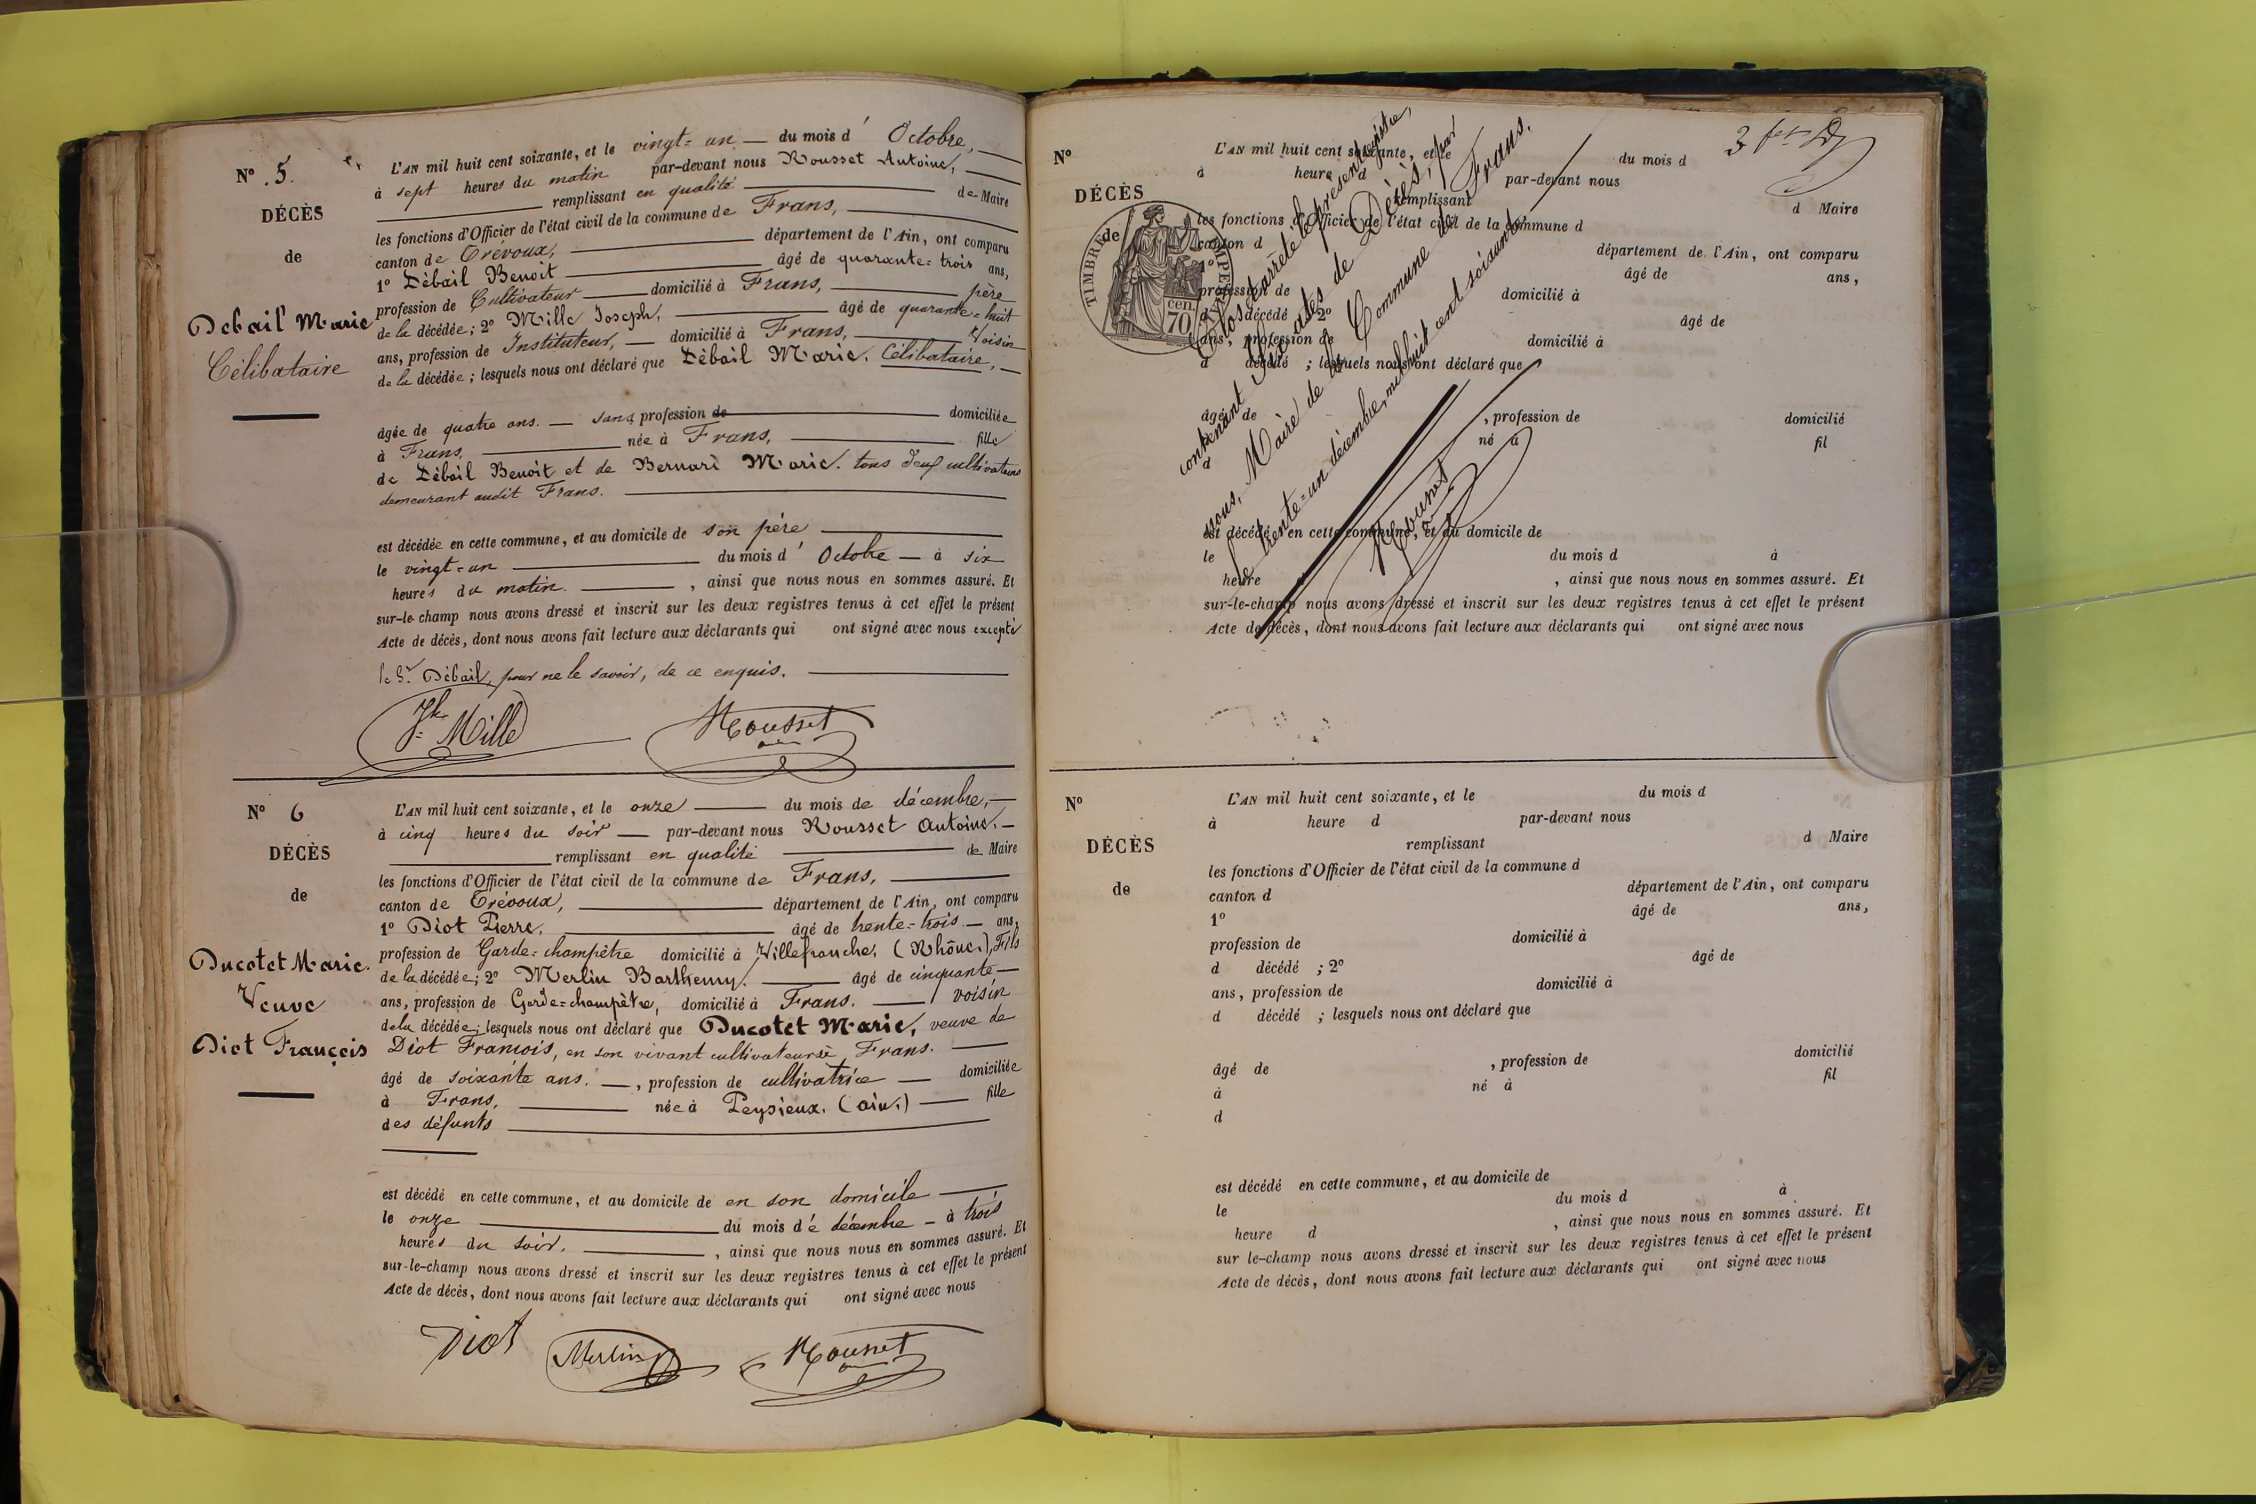 N° 5.
DÉCÈS
de
Debail Marie
Célibataire
L'AN mil huit cent soixante, et le vingt=un — du mois d' Octobre,
à sept heures du matin par-devant nous Rousset Antoine,
remplissant en qualité de Maire
les fonctions d'Officier de l'état civil de la commune de Frans,
canton de Trévoux, département de l'Ain, ont comparu
1° Débail Benoit âgé de quarante=trois ans,
profession de Cultivateur domicilié à Frans, père
de la décédée; 2° Mille Joseph, âgé de quarante=huit
ans, profession de Instituteur, domicilié à Frans, Voisin
de la décédée; lesquels nous ont déclaré que Débail Marie, Célibataire,
âgée de quatre ans. — sans profession de domiciliée
à Frans, née à Frans, fille
de Débail Benoit et de Bernard Marie. tous deux cultivateurs
demeurant audit Frans.
est décédée en cette commune, et au domicile de son père
le vingt=un du mois d' Octobre — à six
heures du matin. , ainsi que nous nous en sommes assuré. Et
sur-le-champ nous avons dressé et inscrit sur les deux registres tenus à cet effet le présent
Acte de décès, dont nous avons fait lecture aux déclarants qui ont signé avec nous excepté
le Sr Débail, pour ne le savoir, de ce enquis.
Jh Mille Rousset
N° 6
DÉCÈS
de
Ducotet Marie.
Veuve
Diot François
L'AN mil huit cent soixante, et le onze du mois de décembre,
à cinq heures du soir — par-devant nous Rousset Antoine.
remplissant en qualité de Maire
les fonctions d'Officier de l'état civil de la commune de Frans,
canton de Trévoux, département de l'Ain, ont comparu
1° Diot Pierre. âgé de trente=trois — ans,
profession de Garde=champêtre domicilié à Villefranche, (Rhône.), Fils
de la décédée; 2° Merlin Barthemy. âgé de cinquante
ans, profession de Garde=champêtre, domicilié à Frans. voisin
de la décédée; lesquels nous ont déclaré que Ducotet Marie, veuve de
Diot Francois, en son vivant cultivateur à Frans.
âgé de soixante ans. —, profession de cultivatrice — domiciliée
à Frans, née à Peysieux. (ain.) fille
des défunts
est décédé en cette commune, et au domicile de en son domicile
le onze du mois d'e décembre — à trois
heures du soir. , ainsi que nous nous en sommes assuré. Et
sur-le-champ nous avons dressé et inscrit sur les deux registres tenus à cet effet le présent
Acte de décès, dont nous avons fait lecture aux déclarants qui ont signé avec nous
Diot Merlin Rousset
N°
DÉCÈS
de
TIMBRE IMPERIAL
70 cen.
L'AN mil huit cent soixante, et le du mois d
à heure d par-devant nous
remplissant d Maire
les fonctions d'Officier de l'état civil de la commune d
canton d département de l'Ain, ont comparu
1° âgé de ans,
profession de domicilié à
d décédé ; 2° âgé de
ans, profession de domicilié à
d décédé ; lesquels nous ont déclaré que
âgé de , profession de domicilié
à né à fil
d
est décédé en cette commune, et au domicile de
le du mois d à
heure d , ainsi que nous nous en sommes assuré. Et
sur-le-champ nous avons dressé et inscrit sur les deux registres tenus à cet effet le présent
Acte de décès, dont nous avons fait lecture aux déclarants qui ont signé avec nous
Clos et arrêté le présent registre,
contenant Six actes de Décès, par
nous, Maire de la Commune de Frans.
le trente=un décembre, mil huit cent soixante.
Rousset
N°
DÉCÈS
de
L'AN mil huit cent soixante, et le du mois d
à heure d par-devant nous
remplissant d Maire
les fonctions d'Officier de l'état civil de la commune d
canton d département de l'Ain, ont comparu
1° âgé de ans,
profession de domicilié à
d décédé ; 2° âgé de
ans, profession de domicilié à
d décédé ; lesquels nous ont déclaré que
âgé de , profession de domicilié
à né à fil
d
est décédé en cette commune, et au domicile de
le du mois d à
heure d , ainsi que nous nous en sommes assuré. Et
sur le-champ nous avons dressé et inscrit sur les deux registres tenus à cet effet le présent
Acte de décès, dont nous avons fait lecture aux déclarants qui ont signé avec nous